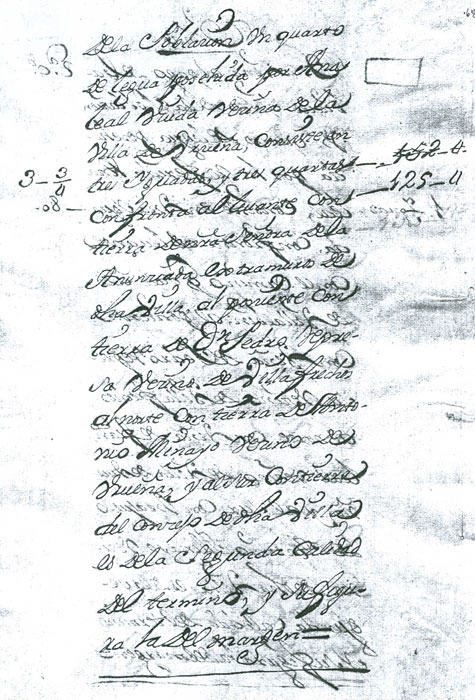 de la Poblacion Un quarto
de legua posehida por Ana
leal Viuda Vecina de la
Villa de Urueña, Consiste en
tres Yguadas, y tres quartas
Confronta al levante Con
tierra de nrâ Señora de la
Anunciada Extramuros de
dha Villa, al poniente Con
tierra de Dn Pedro
Vecino de Villa
al norte Con tierra de Anto-
nio Minayo Vecino de
Urueña, y al Con tierra
del Conzejo de dha Villa
es de la Segunda Calidad
del termino, y su figu-
ra la del margen =
3 - 3/4
08 -
152 - 4
125 - 4